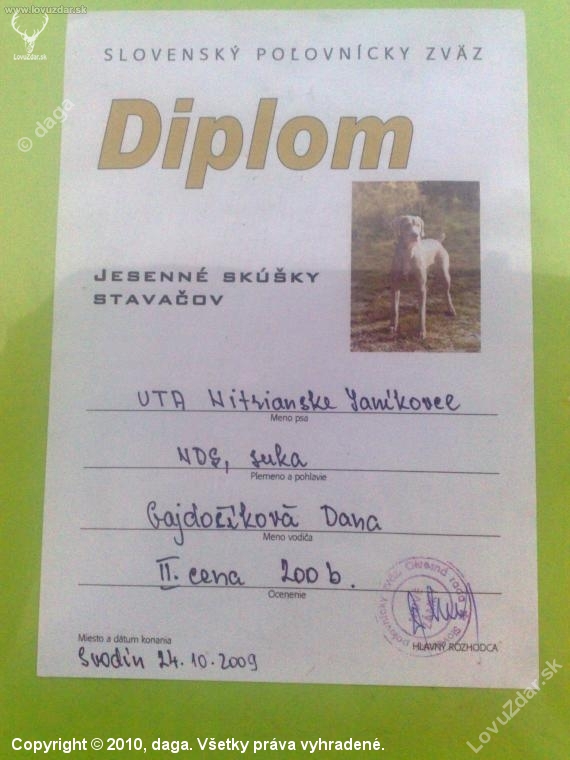 www.lovuzdar.sk
LovuZdar.sk
© daga
SLOVENSKÝ POĽOVNÍCKY ZVÄZ
Diplom
JESENNÉ SKÚŠKY
STAVAČOV
UTA Nitrianske Janíkovce
Meno psa
NDS, suka
Plemeno a pohlavie
Gajdočíková Dana
Meno vodiča
II. cena 200 b.
Ocenenie
Slovenský poľovnícky zväz Okresná rada
NOVÉ ZÁMKY
HLAVNÝ ROZHODCA
Miesto a dátum konania
Svodín 24.10.2009
LovuZdar.sk
Copyright © 2010, daga. Všetky práva vyhradené.